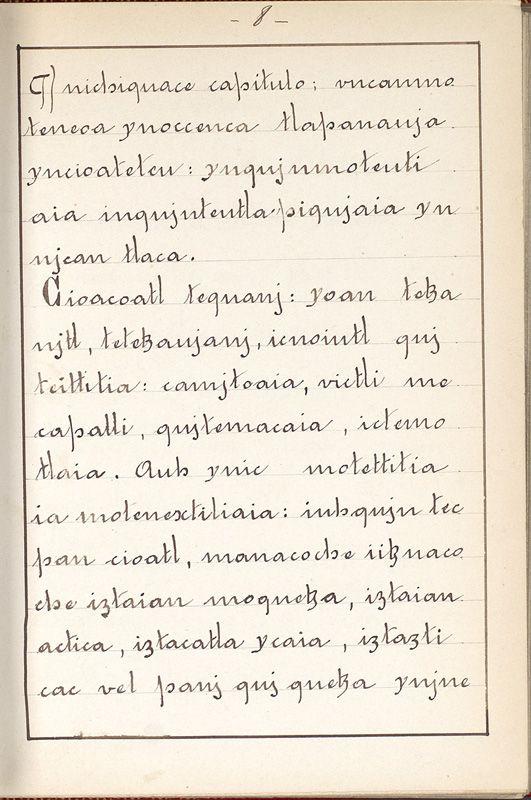 - 8 -
¶ nichiquace capitulo; vncanmo
teneoa ynoccenca tlapanauja
yncioateteu: ynqujnmoteuti
aia inqujntentlapiqujaia yn
njcan tlaca.
Cioacoatl tequanj: yoan tetza
njtl, tetetzaujanj, icnoiutl quj
teittitia: camjtoaia, victli me
capalli, qujtemacaia, ictemo
tlaia. Auh ynic motettitia
ia motenextiliaia: iuhqujn tec
pan cioatl, monacoche iitznaco
che iztaian moquetza, iztaian
actica, iztacatla ycaia, iztazti
cac vel panj quj quetza ynjne